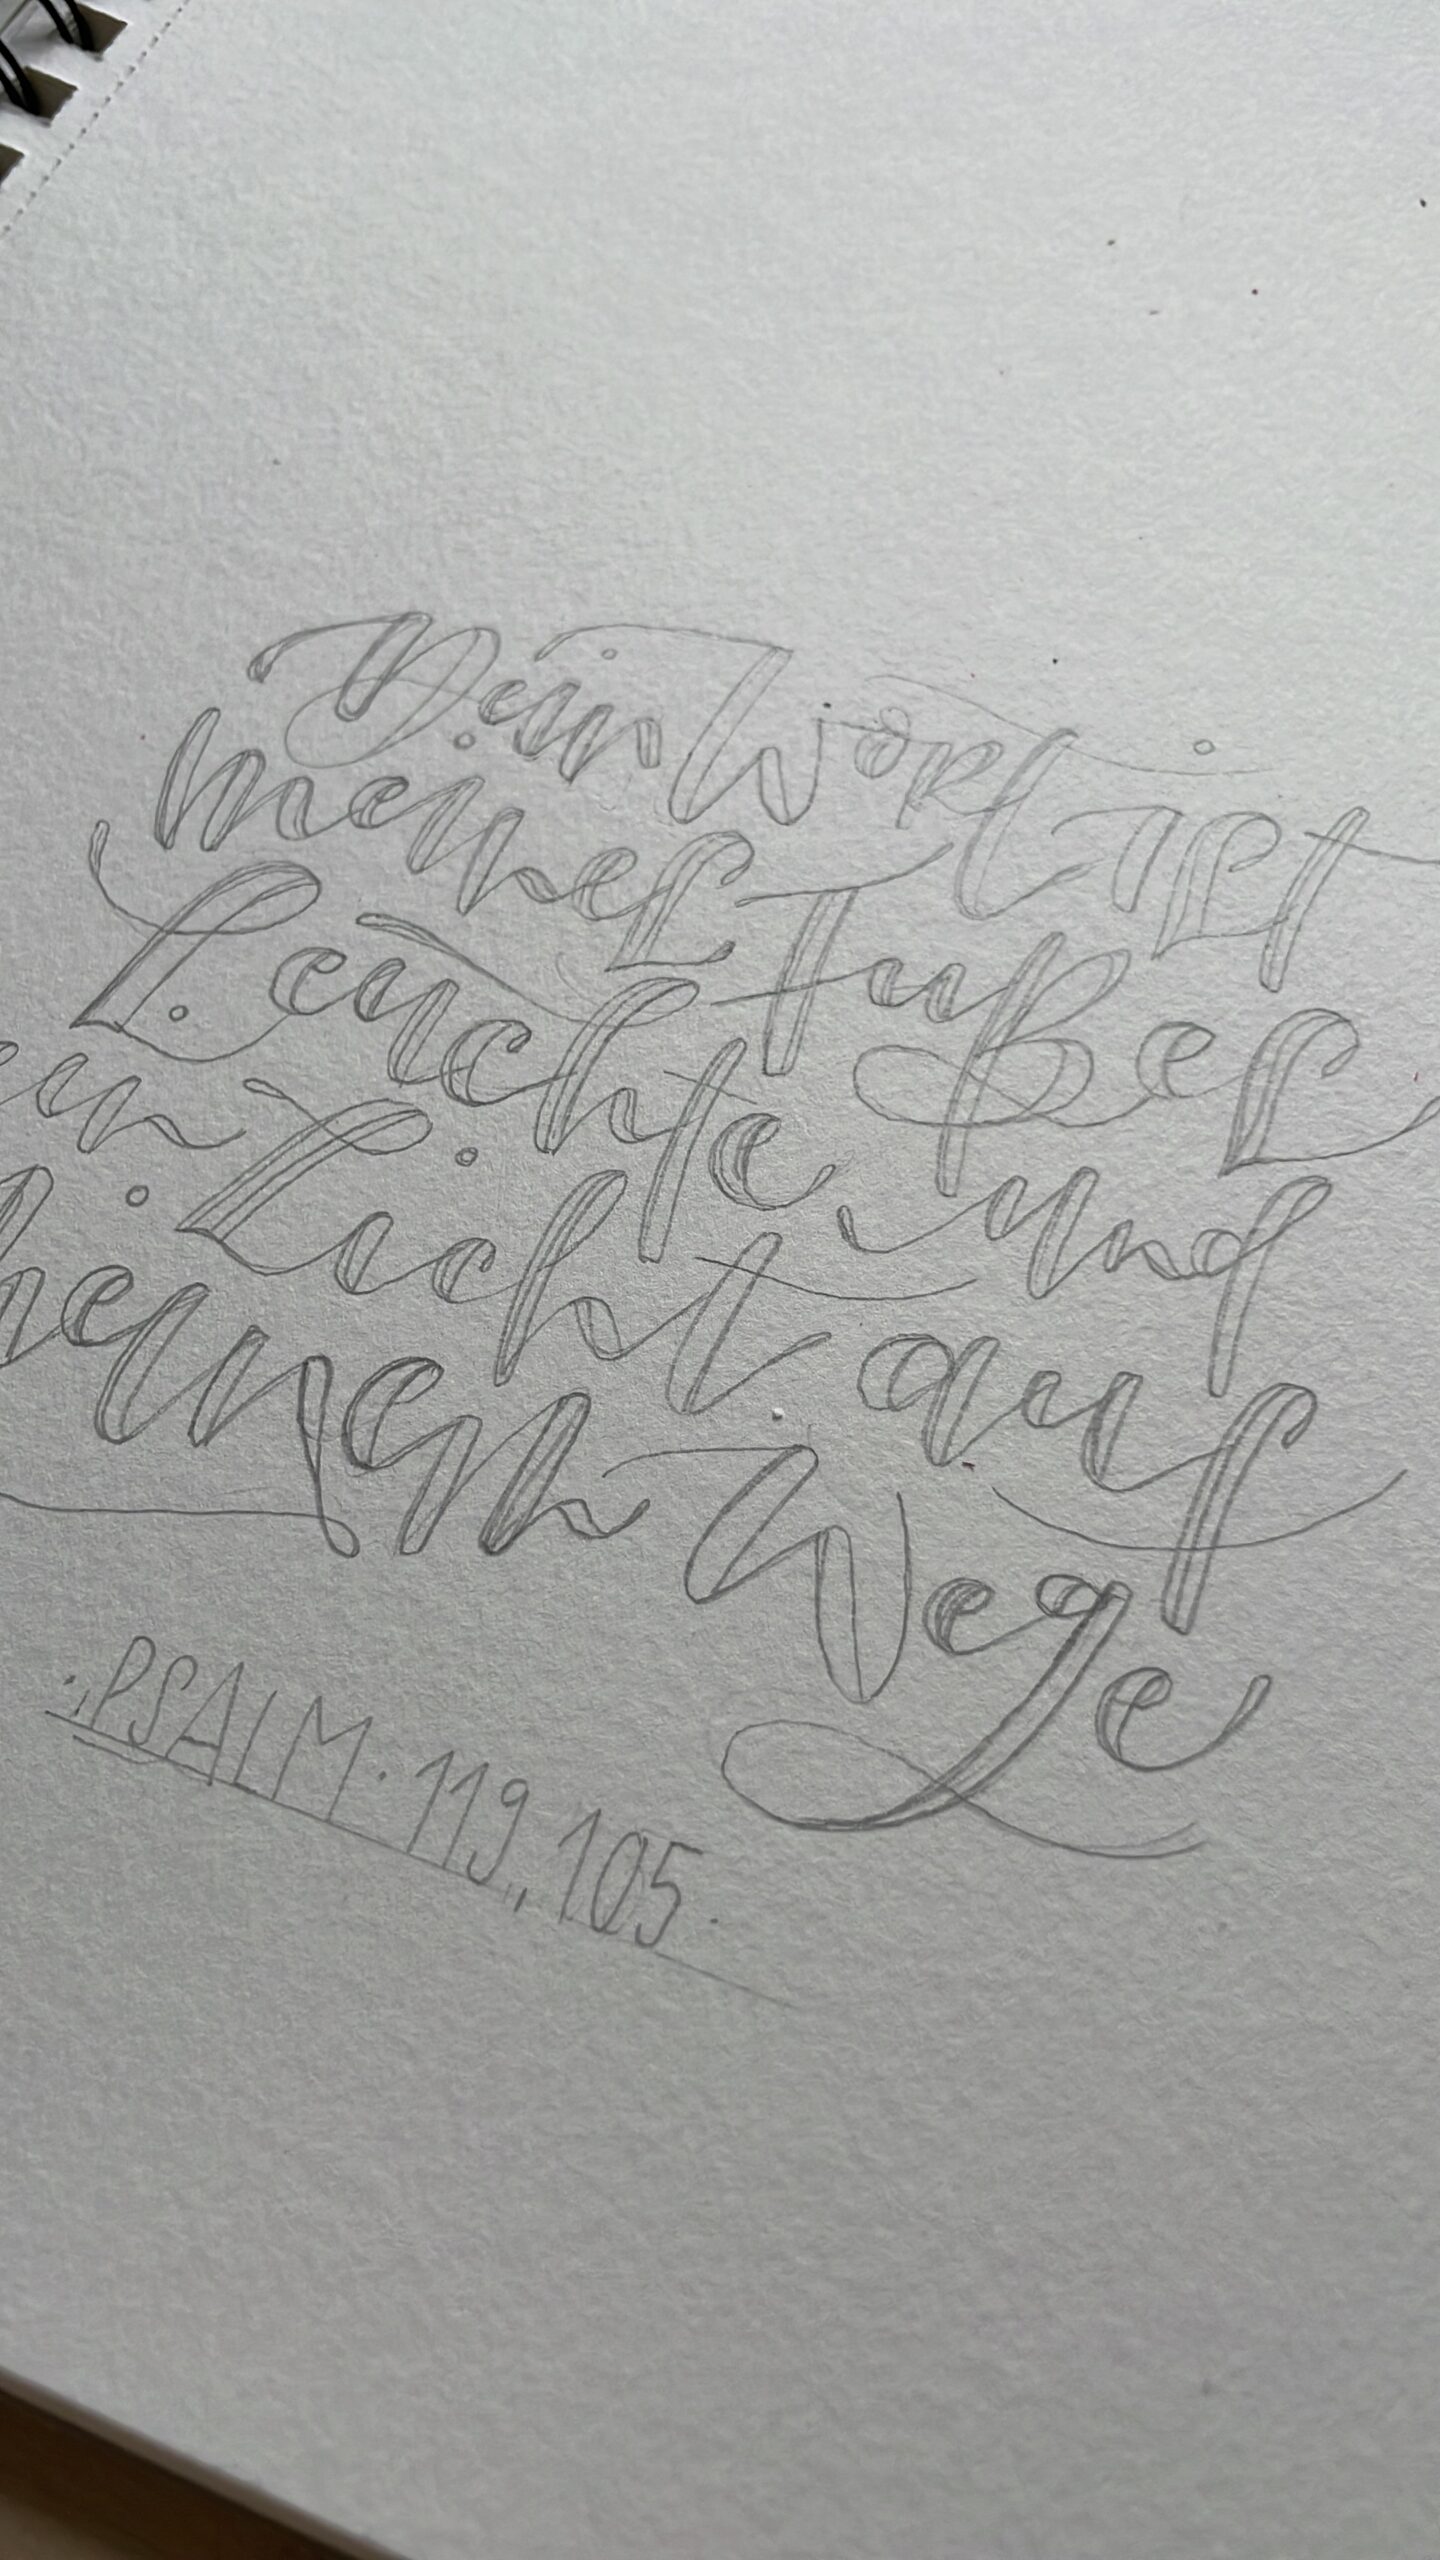 Dein Wort ist
meines Fußes
Leuchte und
ein Licht auf
meinem Wege
· PSALM · 119, 105 ·